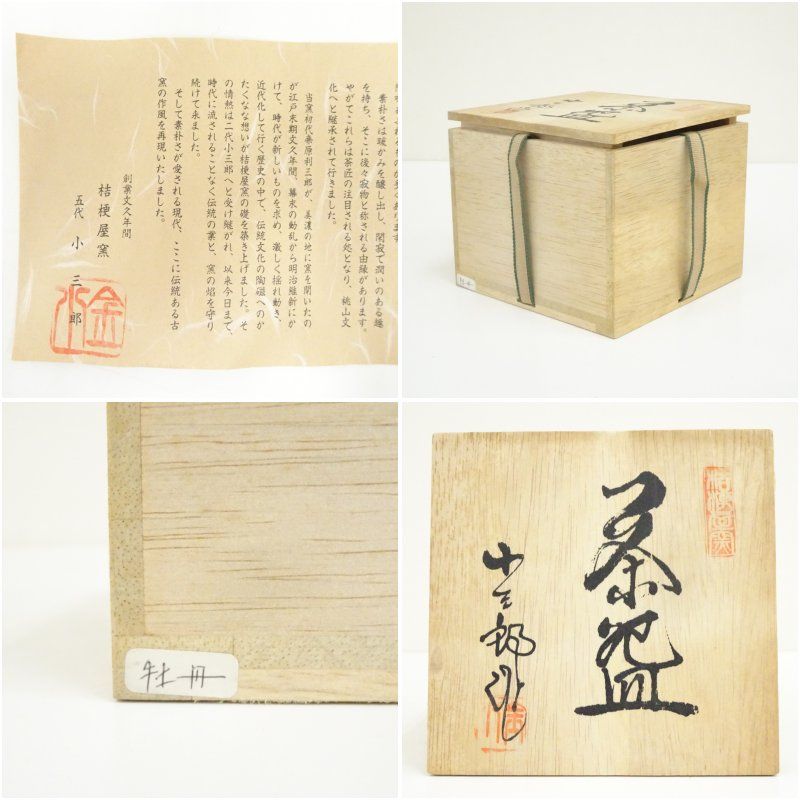 素朴さは暖かみを醸し出し、閑寂で潤いのある趣
を持ち、そこに後々寂物と称される由縁があります。
やがてこれらは茶匠の注目される処となり、桃山文
化へと継承されて行きました。
当窯初代桑原利三郎が、美濃の地に窯を開いたの
が江戸末期文久年間、幕末の動乱から明治維新にか
けて、時代が新しいものを求め、激しく揺れ動き、
近代化して行く歴史の中で、伝統文化の陶磁へのか
たくなな想いが桔梗屋窯の礎を築き上げました。そ
の情熱は二代小三郎へと受け継がれ、以来今日まで、
時代に流されることなく伝統の業と、窯の焰を守り
続けて来ました。
そして素朴さが愛される現代、ここに伝統ある古
窯の作風を再現いたしました。
創業文久年間
桔梗屋窯
五代 小三郎
牡丹
牡丹
茶盌
小三郎作
桔梗屋窯